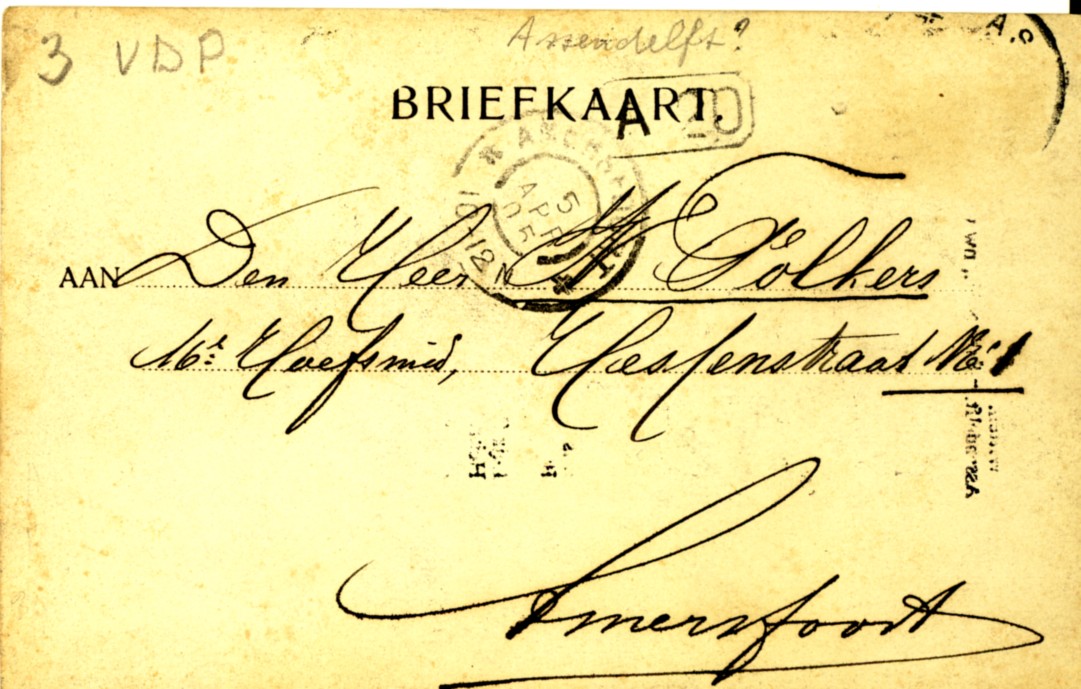 3 VDP
Assendelft?
BRIEFKAART.
A
5
APR
05
10-12 N
4
AAN Den Heer Folkers
Mr Hoefsmid, Hessenstraat No 1
Amersfoort